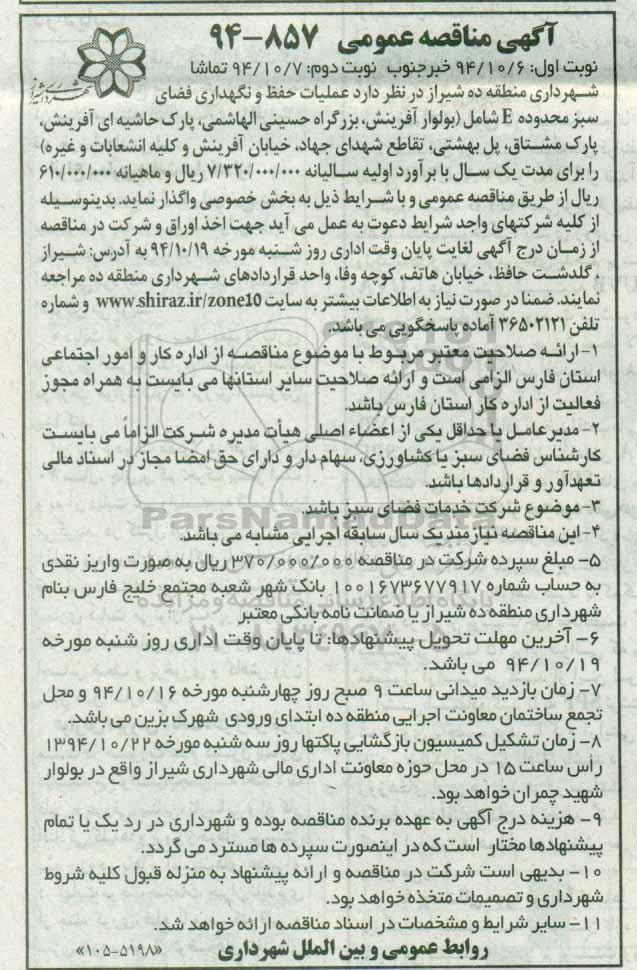 آگهی مناقصه عمومی ۸۵۷-۹۴
نوبت اول: ۹۴/۱۰/۶ خبرجنوب نوبت دوم: ۹۴/۱۰/۷ تماشا
شهرداری شیراز
شهرداری منطقه ده شیراز در نظر دارد عملیات حفظ و نگهداری فضای
سبز محدوده E شامل (بولوار آفرینش، بزرگراه حسینی الهاشمی، پارک حاشیه ای آفرینش،
پارک مشتاق، پل بهشتی، تقاطع شهدای جهاد، خیابان آفرینش و کلیه انشعابات و غیره)
را برای مدت یک سال با برآورد اولیه سالیانه ۷/۳۲۰/۰۰۰/۰۰۰ ریال و ماهیانه ۶۱۰/۰۰۰/۰۰۰
ریال از طریق مناقصه عمومی و با شرایط ذیل به بخش خصوصی واگذار نماید. بدینوسیله
از کلیه شرکتهای واجد شرایط دعوت به عمل می آید جهت اخذ اوراق و شرکت در مناقصه
از زمان درج آگهی لغایت پایان وقت اداری روز شنبه مورخه ۹۴/۱۰/۱۹ به آدرس: شیراز
، گلدشت حافظ، خیابان هاتف، کوچه وفا، واحد قراردادهای شهرداری منطقه ده مراجعه
نمایند. ضمنا در صورت نیاز به اطلاعات بیشتر به سایت www.shiraz.ir/zone10 و شماره
تلفن ۳۶۵۰۲۱۲۱ آماده پاسخگویی می باشد.
۱- ارائه صلاحیت معتبر مربوط با موضوع مناقصه از اداره کار و امور اجتماعی
استان فارس الزامی است و ارائه صلاحیت سایر استانها می بایست به همراه مجوز
فعالیت از اداره کار استان فارس باشد.
۲- مدیرعامل یا حداقل یکی از اعضاء اصلی هیأت مدیره شرکت الزاماً می بایست
کارشناس فضای سبز یا کشاورزی، سهام دار و دارای حق امضا مجاز در اسناد مالی
تعهدآور و قراردادها باشد.
۳- موضوع شرکت خدمات فضای سبز باشد.
ParsNamadData
۴- این مناقصه نیازمند یک سال سابقه اجرایی مشابه می باشد.
۵- مبلغ سپرده شرکت در مناقصه ۳۷۰/۰۰۰/۰۰۰ ریال به صورت واریز نقدی
به حساب شماره ۱۰۰۱۶۷۳۶۷۷۹۱۷ بانک شهر شعبه مجتمع خلیج فارس بنام
شهرداری منطقه ده شیراز یا ضمانت نامه بانکی معتبر
۶- آخرین مهلت تحویل پیشنهادها: تا پایان وقت اداری روز شنبه مورخه
۹۴/۱۰/۱۹ می باشد.
۷- زمان بازدید میدانی ساعت ۹ صبح روز چهارشنبه مورخه ۹۴/۱۰/۱۶ و محل
تجمع ساختمان معاونت اجرایی منطقه ده ابتدای ورودی شهرک بزین می باشد.
۸- زمان تشکیل کمیسیون بازگشایی پاکتها روز سه شنبه مورخه ۱۳۹۴/۱۰/۲۲
رأس ساعت ۱۵ در محل حوزه معاونت اداری مالی شهرداری شیراز واقع در بولوار
شهید چمران خواهد بود.
۹- هزینه درج آگهی به عهده برنده مناقصه بوده و شهرداری در رد یک یا تمام
پیشنهادها مختار است که در اینصورت سپرده ها مسترد می گردد.
۱۰- بدیهی است شرکت در مناقصه و ارائه پیشنهاد به منزله قبول کلیه شروط
شهرداری و تصمیمات متخذه خواهد بود.
۱۱- سایر شرایط و مشخصات در اسناد مناقصه ارائه خواهد شد.
روابط عمومی و بین الملل شهرداری «۱۰۵-۵۱۹۸»